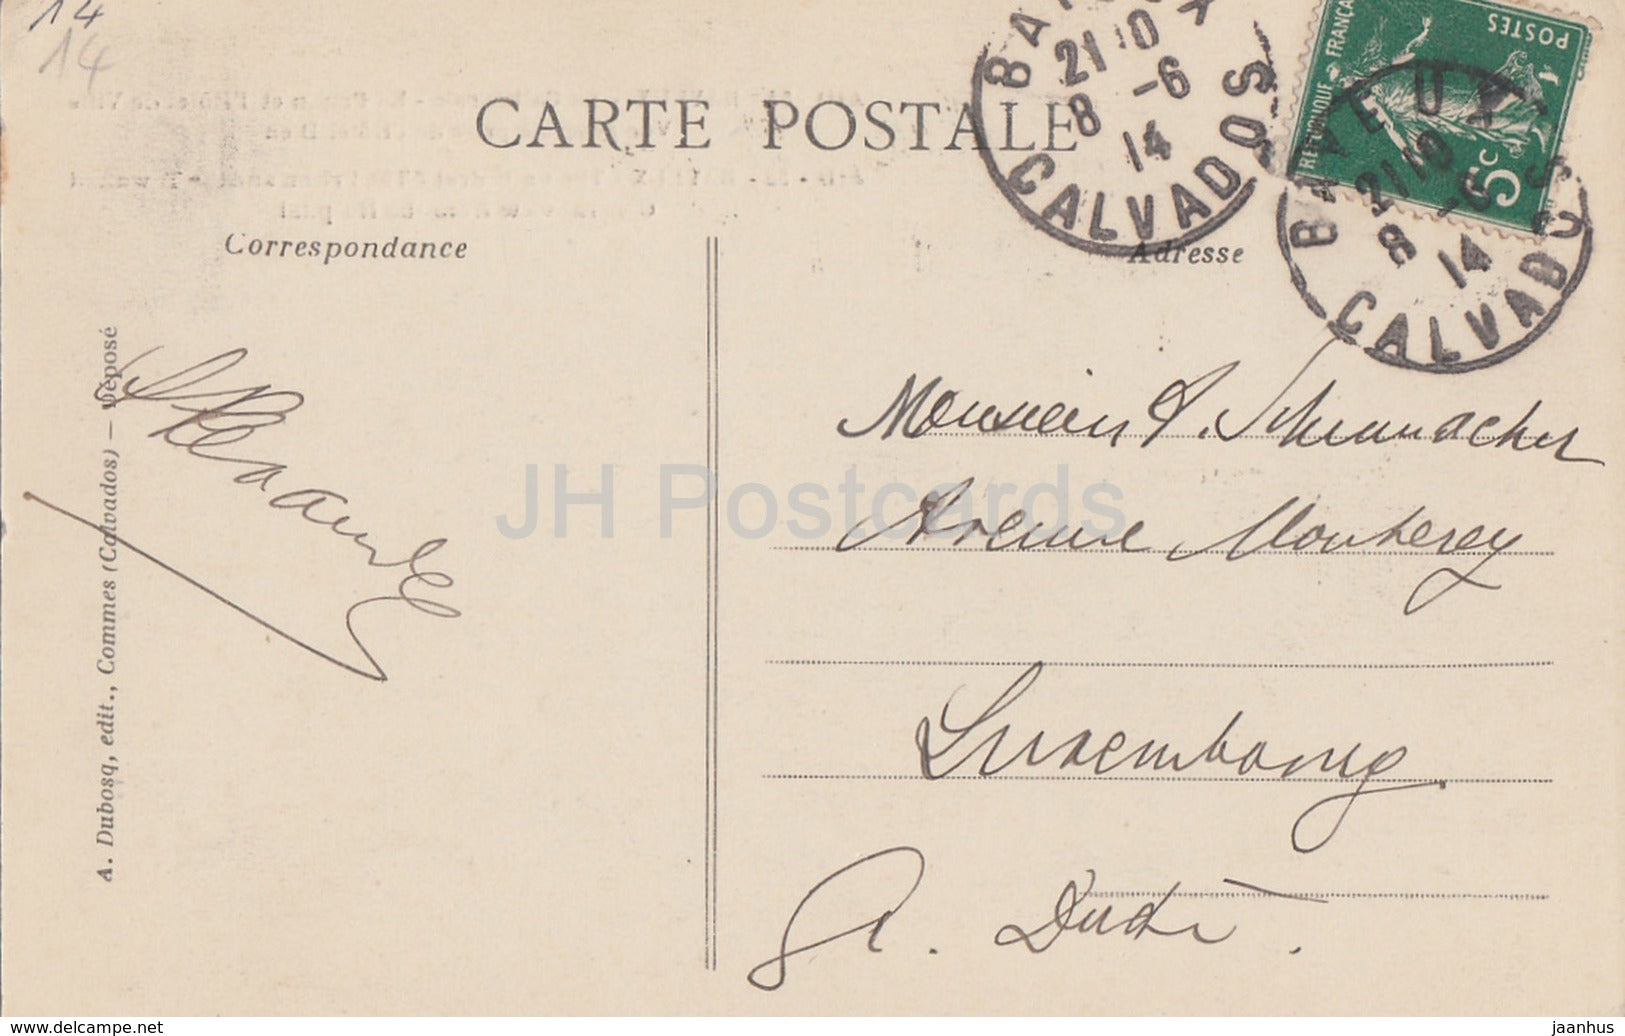 14
14
CARTE POSTALE
BAYEUX
21 10
8 -6
14
CALVADOS
POSTES
REPUBLIQUE FRANÇAISE
5c
BAYEUX
21 10
8 -6
14
CALVADOS
Correspondance
Adresse
A. Dubosq, edit., Commes (Calvados) — Déposé
Monsieur A. Schumacher
Avenue Monterey
Luxembourg
Gr. Duché.
JH Postcards
www.delcampe.net
jaanhus